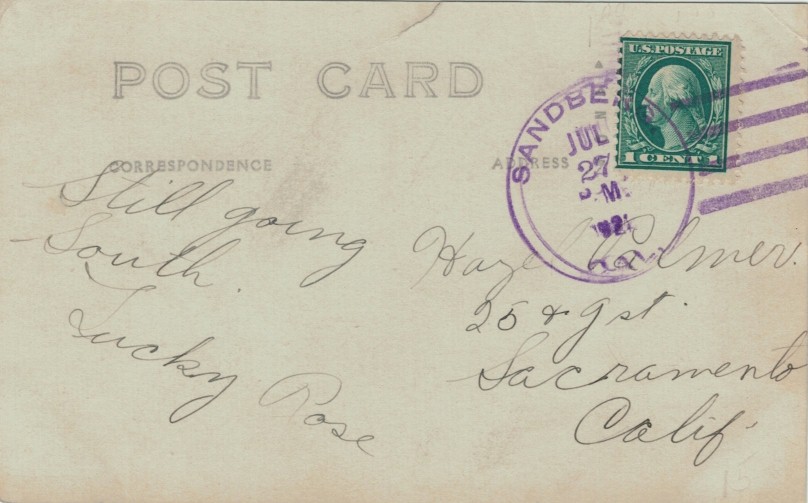 POST CARD
CORRESPONDENCE
ADDRESS
U.S. POSTAGE
1 CENT 1
JUL
27
M.
CAL.
Still going
South.
Lucky Rose
Hazel Palmer.
25 & G st.
Sacramento
Calif.
15